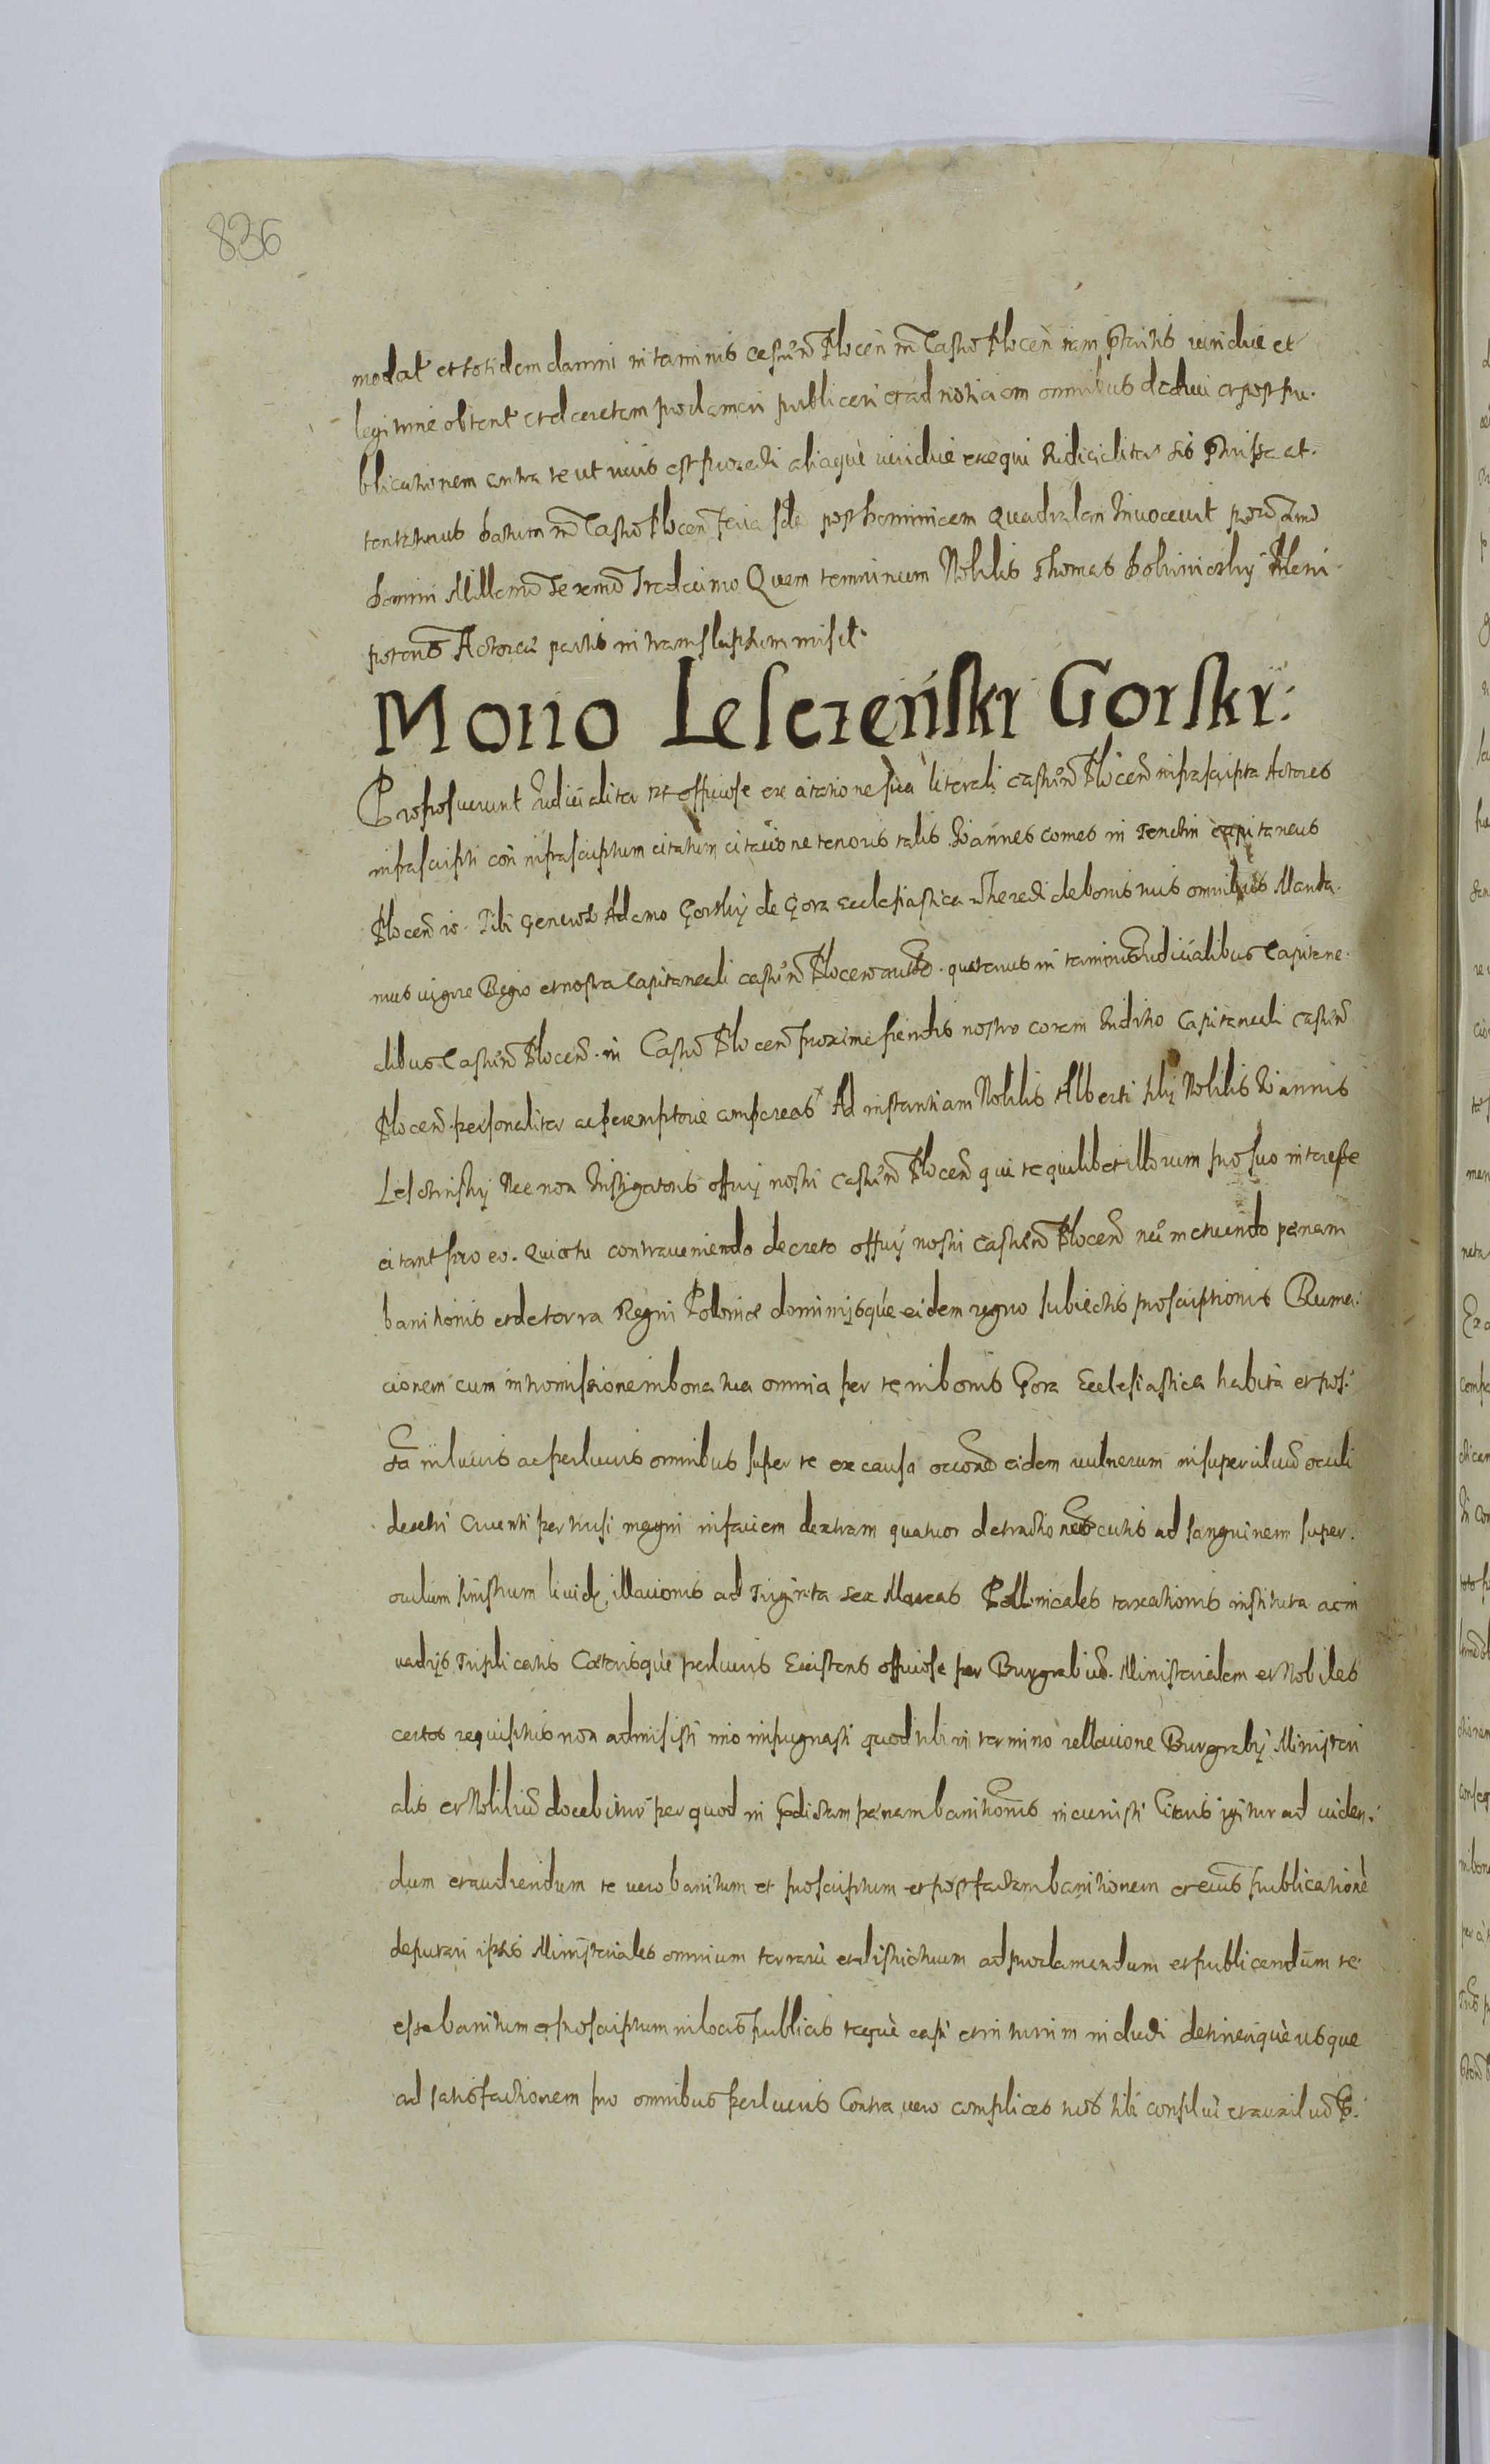 836
modat et totidem damni in terminis castren Plocen in Castro Plocen iam praeteritis iuridice et
legitime obtent et decretam proclamari publicari et ad noticiam omnibus deduci et post pu-
blicationem contra te ut iuris est procedi aliaque iuridice exequi Iudicialiter sis at-
tentaturus Datum in Castro Plocen Feria post Dominicam Quadralem Inuocauit Anno
Domini Millemo Sexcmo Tredecimo Quem terminum Nobilis Thomas Pleni
potens Actorea partis in transluphum misit
Motio Lesczeński Gorski:
Proposuerunt Iudicialiter et officiose ex citatione sua literali castren Plocen infrascripta Actores
infrascripti con infrascriptum citatum citatione tenoris talis Ioannes comes in Tenchin capitaneus
Plocen Tibi Generoso Adamo Gorsky de Gora Ecclesiastica heredi de bonis tuis omnibus Manda-
mus uigore Regio et nostra Capitaneali castren Plocen autte quatenus in terminis Iudicialibus Capitane-
alibus Castren Plocen in Castro Plocen proxime fiendis nostro coram Iuditio Capitaneali castren
Plocen personaliter ac peremptorie compareas Ad instantiam Nobilis Alberti filij Nobilis Ioannis
Lesctinsky Nec non Instigatoris officij nostri castren Plocen qui te quilibet illorum pro suo interesse
citant pro eo Quia tu contraueniendo decreto officij nostri castren Plocen nec metuendo penam
banitionis et de terra Regni Polloniae dominijsque eidem regno subiectis proscriptionis Ruma-
cionem cum intromissione in bona tua omnia per te in bonis Gora Ecclesiastica habita et pos-
sa in lucris ac perlucris omnibus super te ex causa occone eidem vulnerum in supercilium oculi
dextri cruenti pertusi magni in faciem dextram quatuor detractiones cutis ad sanguinem super
oculum sinistrum liuidi illacionis ad Triginta sex Marcas Pollonicales taxationis instituta ac in
vadijs Triplicatis Caeterisque perlucris Existens officiose per Burgrabium Ministerialem et Nobiles
certos requisitus non admisisti imo impugnasti quod tibi in termino rellacione Burgrabij Ministeri
alis et Nobilium docebitur per quod in praedictam penam banitionis incuristi Citaris igitur ad viden-
dum et audiendum te vero banitum et proscriptum et post factam banitionem et eius publicatione
deputari ipsis Ministeriales omnium terraru et districtuum ad proclamandum et publicandum te
esse banitum et proscriptum in locis publicis teque capi et in turrim includi detinerique usque
ad satisfactionem pro omnibus perlucris Contra vero complices tuos tibi consiliu et auxilium